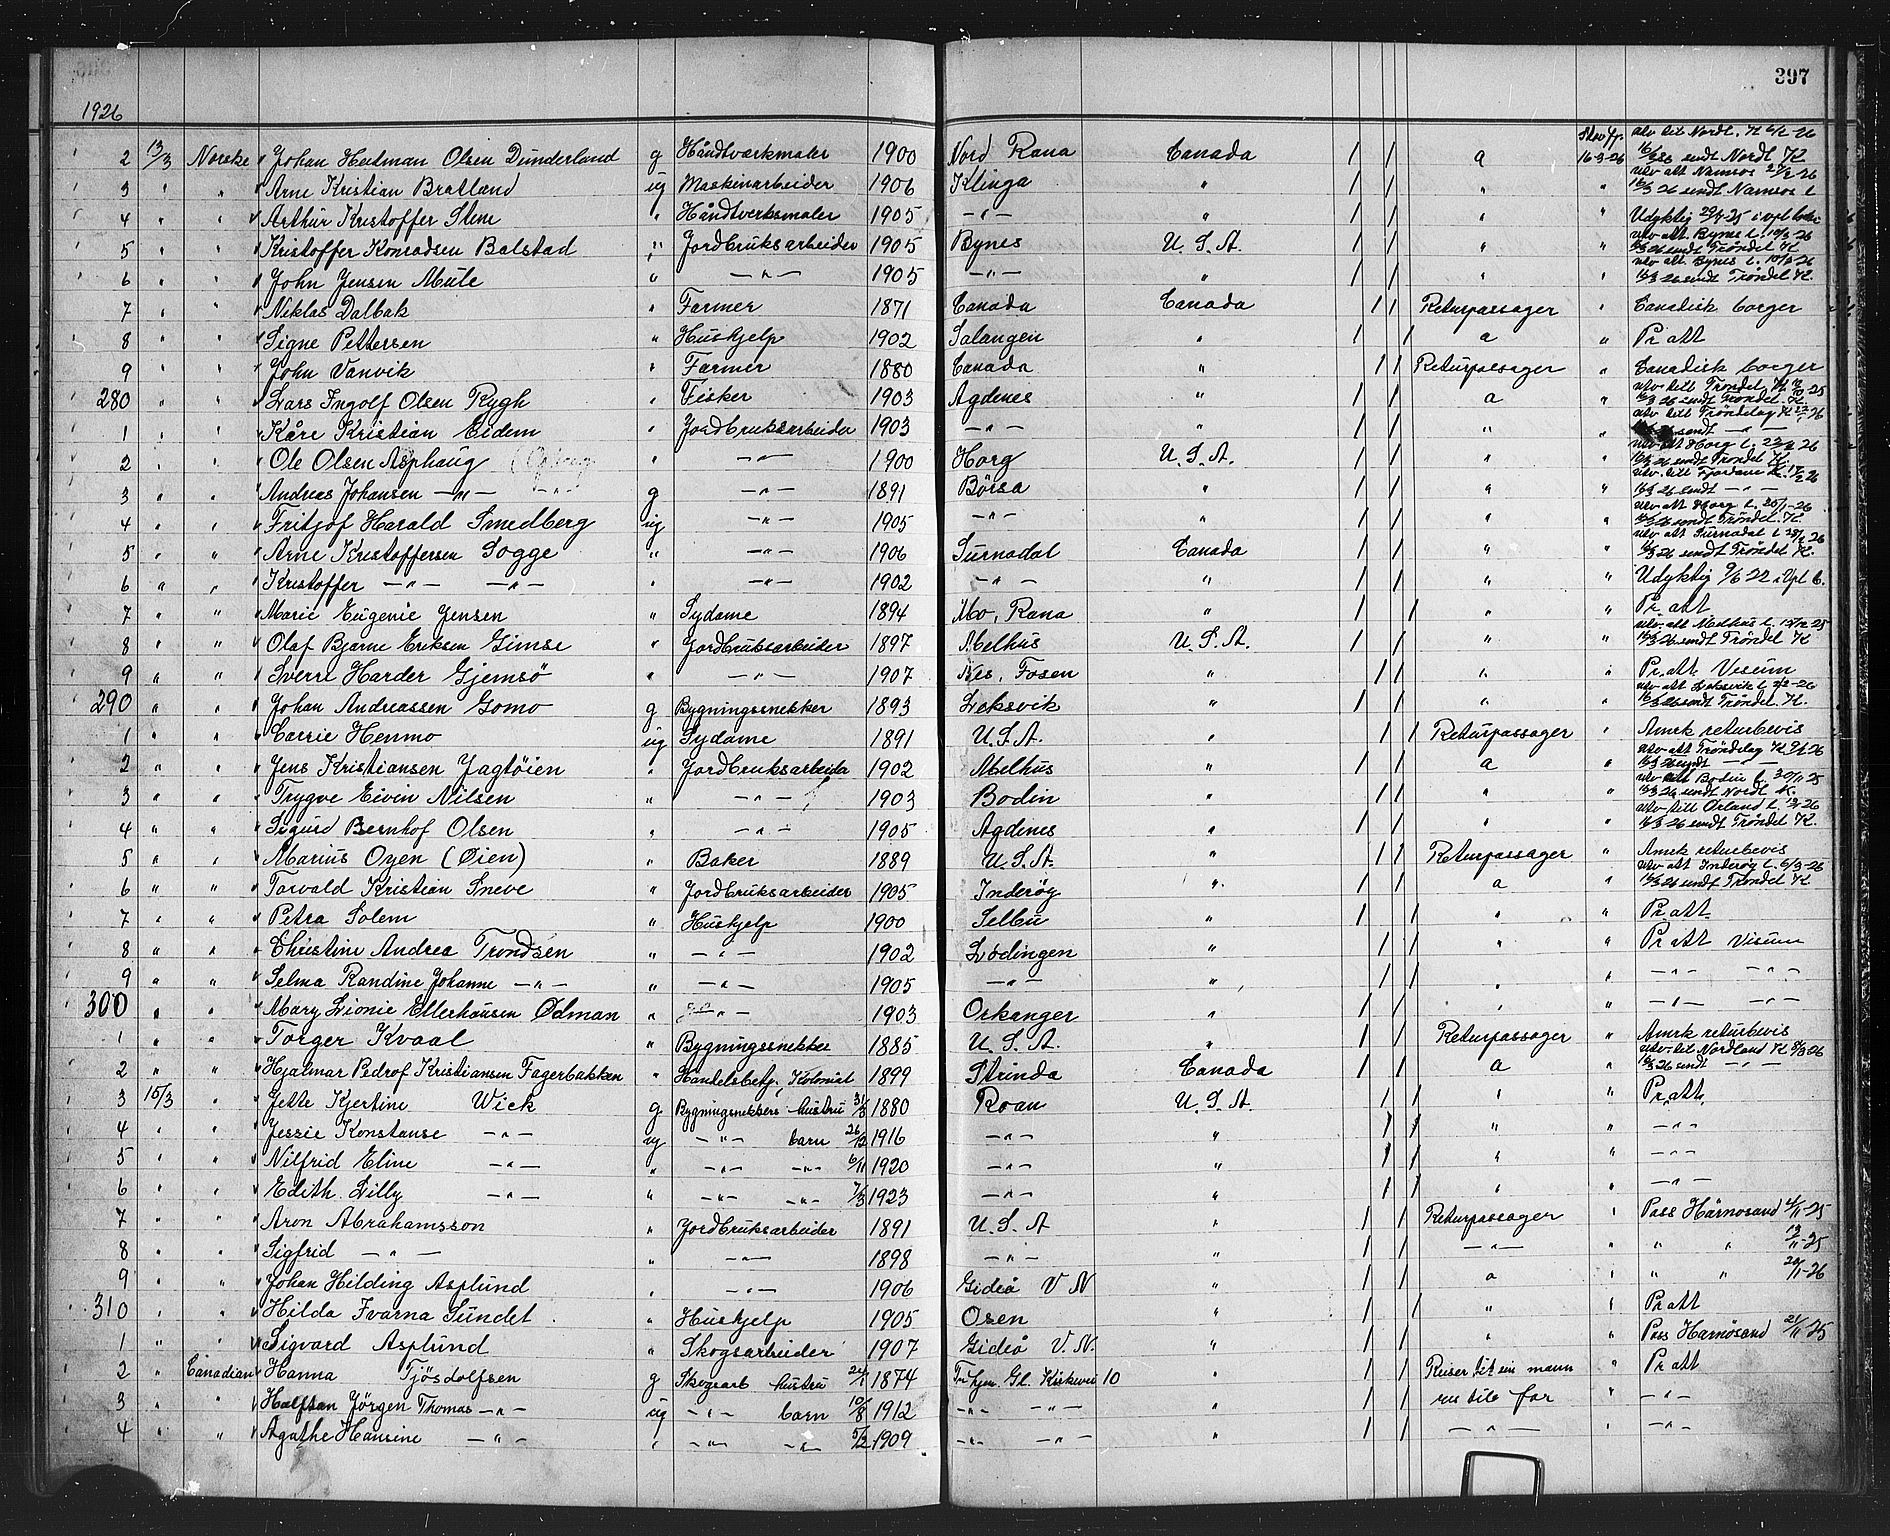 397
1926
Skov fr.
2 13/3 Norske Johan Hedman Olsen Dunderland g Håndtverkmaler 1900 Nord Rana Canada / / a 16-3-26 16/3 26 sendt Nordl. K
3 " " Arne Kristian Bratland ug Maskinarbeider 1906 Klinga " / / " " 16/3 26 sendt Namsos l
4 " " Arthur Kristoffer Stene " Håndtverksmaler 1905 -"- " / / " " Udyktig
5 " " Kristoffer Konradsen Balstad " Jordbruksarbeider 1905 Bynes U.S.A. / / " " 16/3 26 sendt Tröndel. K.
6 " " John Jensen Mule " -"- 1905 -"- " / / " " 16/3 26 sendt Tröndel K.
7 " " Niklas Dalbak " Farmer 1871 Canada Canada / / Returpassager " Canadisk borger
8 " " Signe Pettersen " Hushjelp 1902 Salangen " / / a " Pr att
9 " " John Vanvik " Farmer 1880 Canada " / / Returpassager " Canadisk borger
280 " " Lars Ingolf Olsen Rygh " Fisker 1903 Agdenes " / / a " 16/3 26 sendt Tröndel. K.
1 " " Kåre Kristian Eidem " Jordbruksarbeider 1903 -"- " / / " " sendt -"-
2 " " Ole Olsen Asphaug " -"- 1900 Horg U.S.A. / / " " 16/3 26 sendt Tröndel K.
3 " " Andreas Johansen -"- -"- g -"- 1891 Börsa " / / " " 16/3 26 sendt -"-
4 " " Fritjof Harald Smedberg ug -"- 1905 -"- " / / " " 16/3 26 sendt Tröndel. K.
5 " " Arne Kristoffersen Sogge " -"- 1906 Surnadal Canada / / " " 16/3 26 sendt Tröndel K.
6 " " Kristoffer -"- -"- " -"- 1902 -"- " / / " " Udyktig 9/6 22 i Vpl b.
7 " " Marie Eugenie Jensen " Sydame 1894 Mo, Rana " / / " " Pr. att
8 " " Olaf Bjarne Eriksen Gimse " Jordbruksarbeider 1897 Melhus U.S.A. / / " " 16/3 26 sendt Tröndel K
9 " " Sverre Harder Gjemsö " -"- 1907 Nes, Fosen " / / " " Pr. att Viseum
290 " " Johan Andreassen Gomo g Bygningssnekker 1893 Leksvik " / / " " 16/3 26 sendt Tröndel. K.
1 " " Carrie Henmo ug Sydame 1891 U.S.A. " / / Returpassager " Amrk returbevis
2 " " Jens Kristiansen Jagtöien " Jordbruksarbeider 1902 Melhus " / / a " 16/3 26 sendt -"-
3 " " Trygve Eivin Nilsen " -"- 1903 Bodin " / / " " 16/3 26 sendt Nordl K.
4 " " Sigurd Bernhof Olsen " -"- 1905 Agdenes " / / " " 16/3 26 sendt Tröndel K.
5 " " Marius Oyen (Øien) " Baker 1889 U.S.A. " / / Returpassager " Amrk returbevis
6 " " Torvald Kristian Sneve " Jordbruksarbeider 1905 Inderög " / / a " 16/3 26 sendt Tröndel K.
7 " " Petra Solem " Hushjelp 1900 Selbu " / / " " Pr. att.
8 " " Christine Andrea Trondsen " -"- 1902 Lödingen " / / " " Pr att Viseum
9 " " Selma Randine Johanne -"- " -"- 1905 -"- " / / " " -"- -"-
300 " " Mary Lionie Ellerhausen Ødman " -"- 1903 Orkanger " / / " " -"- -"-
1 " " Torger Kvaal " Bygningssnekker 1885 U.S.A. " / / Returpassager " Amrk returbevis
2 " " Hjalmar Pedrof Kristiansen Fagerbakken " Handelsbetj. Kolonial 1899 Strinda Canada / / a " 16/3 26 sendt -"-
3 15/3 " Jette Kjertine Wick g Bygningsnekkers hustru 31/3 1880 Roan U.S.A. / / " " Pr. att.
4 " " Jessie Konstanse -"- ug -"- barn 26/12 1916 -"- " / / " " -"-
5 " " Nilfrid Eline -"- " -"- -"- 6/11 1920 -"- " / / " " -"-
6 " " Edith Lilly -"- " -"- -"- 7/3 1923 -"- " / / " " -"-
7 " " Aron Abrahamsson " Jordbruksarbeider 1891 U.S.A " / / Returpassager " Pass Härnosand 4/11-25
8 " " Sigfrid -"- " -"- 1898 -"- " / / -"- " " " 13/11-25
9 " " Johan Hilding Asplund " -"- 1906 Gideå V N " / / a " " " 20/1-26
310 " " Hilda Ivarna Sundet " Hushjelp 1905 Osen " / / " " Pr att
1 " " Sigvard Asplund " Skogsarbeider 1907 Gideå V.N. " / / " " Pass Harnösand 21/11-25
2 " Canadian Hanna Tjösdolfsen g Skogsarb hustru 24/1 1874 Gl. Kirkevei 10 " / / Reiser til sin mann " Pr att
3 " " Halfdan Jörgen Thomas -"- ug -"- barn 10/8 1912 -"- -"- " / / far " -"-
4 " " Agathe Hansine -"- " -"- -"- 5/2 1909 -"- -"- " / / -"- " -"-